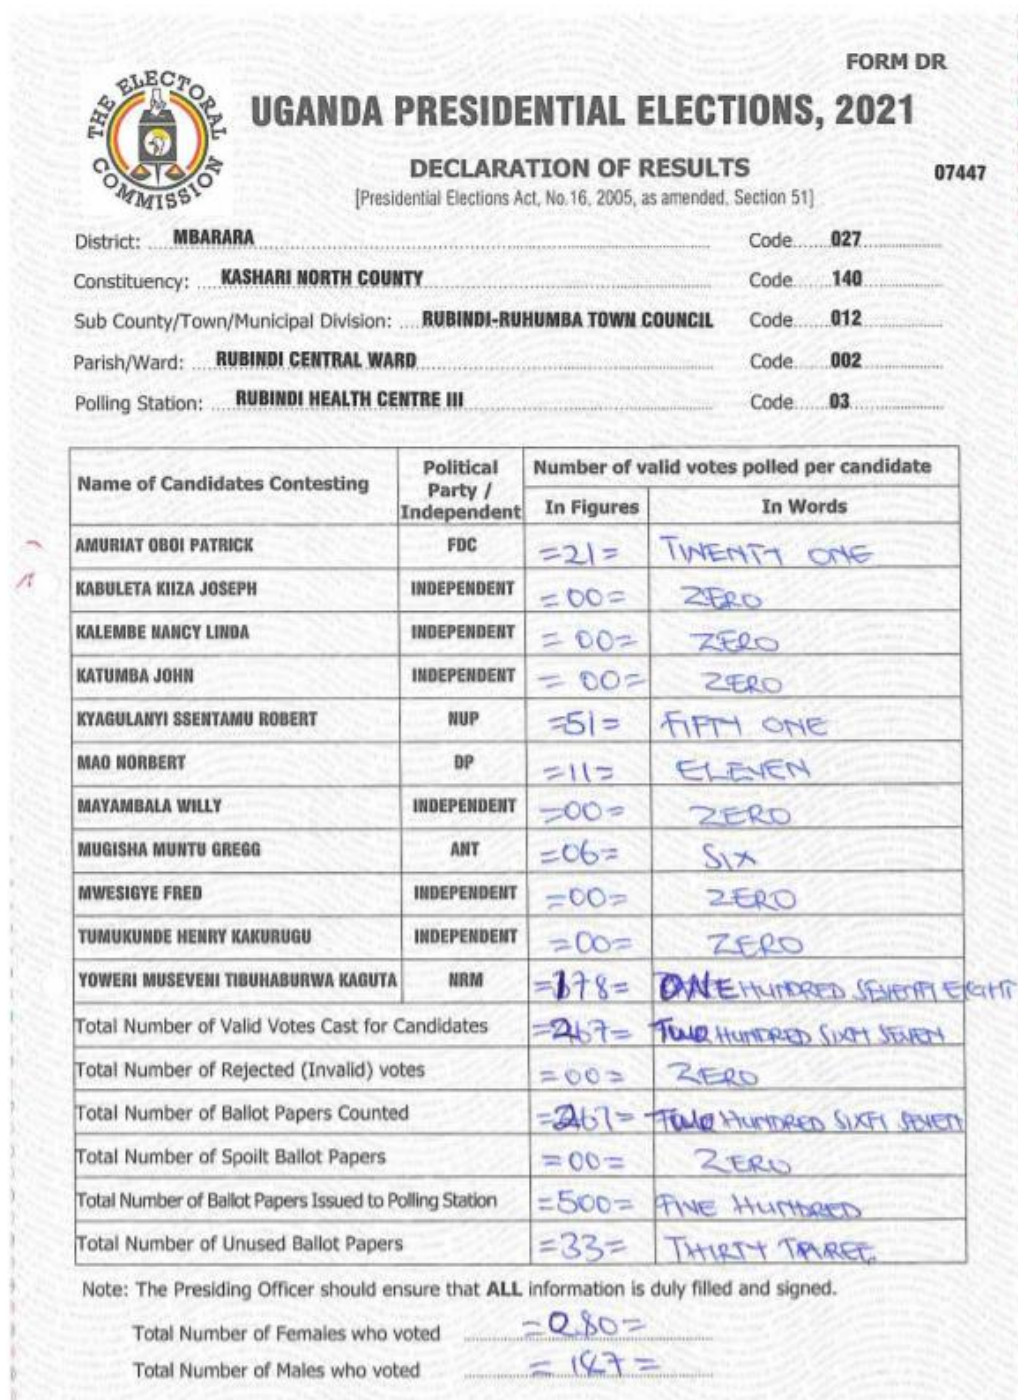 FORM DR
THE ELECTORAL COMMISSION
UGANDA PRESIDENTIAL ELECTIONS, 2021
DECLARATION OF RESULTS
07447
[Presidential Elections Act, No.16, 2005, as amended, Section 51]
District: MBARARA Code 027
Constituency: KASHARI NORTH COUNTY Code 140
Sub County/Town/Municipal Division: RUBINDI-RUHUMBA TOWN COUNCIL Code 012
Parish/Ward: RUBINDI CENTRAL WARD Code 002
Polling Station: RUBINDI HEALTH CENTRE III Code 03
Name of Candidates Contesting Political Party / Independent Number of valid votes polled per candidate
In Figures In Words
AMURIAT OBOI PATRICK FDC =21= TWENTY ONE
KABULETA KIIZA JOSEPH INDEPENDENT =00= ZERO
KALEMBE NANCY LINDA INDEPENDENT =00= ZERO
KATUMBA JOHN INDEPENDENT =00= ZERO
KYAGULANYI SSENTAMU ROBERT NUP =51= FIFTY ONE
MAO NORBERT DP =11= ELEVEN
MAYAMBALA WILLY INDEPENDENT =00= ZERO
MUGISHA MUNTU GREGG ANT =06= SIX
MWESIGYE FRED INDEPENDENT =00= ZERO
TUMUKUNDE HENRY KAKURUGU INDEPENDENT =00= ZERO
YOWERI MUSEVENI TIBUHABURWA KAGUTA NRM =178= ONE HUNDRED SEVENTY EIGHT
Total Number of Valid Votes Cast for Candidates =267= TWO HUNDRED SIXTY SEVEN
Total Number of Rejected (Invalid) votes =00= ZERO
Total Number of Ballot Papers Counted =267= TWO HUNDRED SIXTY SEVEN
Total Number of Spoilt Ballot Papers =00= ZERO
Total Number of Ballot Papers Issued to Polling Station =500= FIVE HUNDRED
Total Number of Unused Ballot Papers =33= THIRTY THREE
Note: The Presiding Officer should ensure that ALL information is duly filled and signed.
Total Number of Females who voted
Total Number of Males who voted